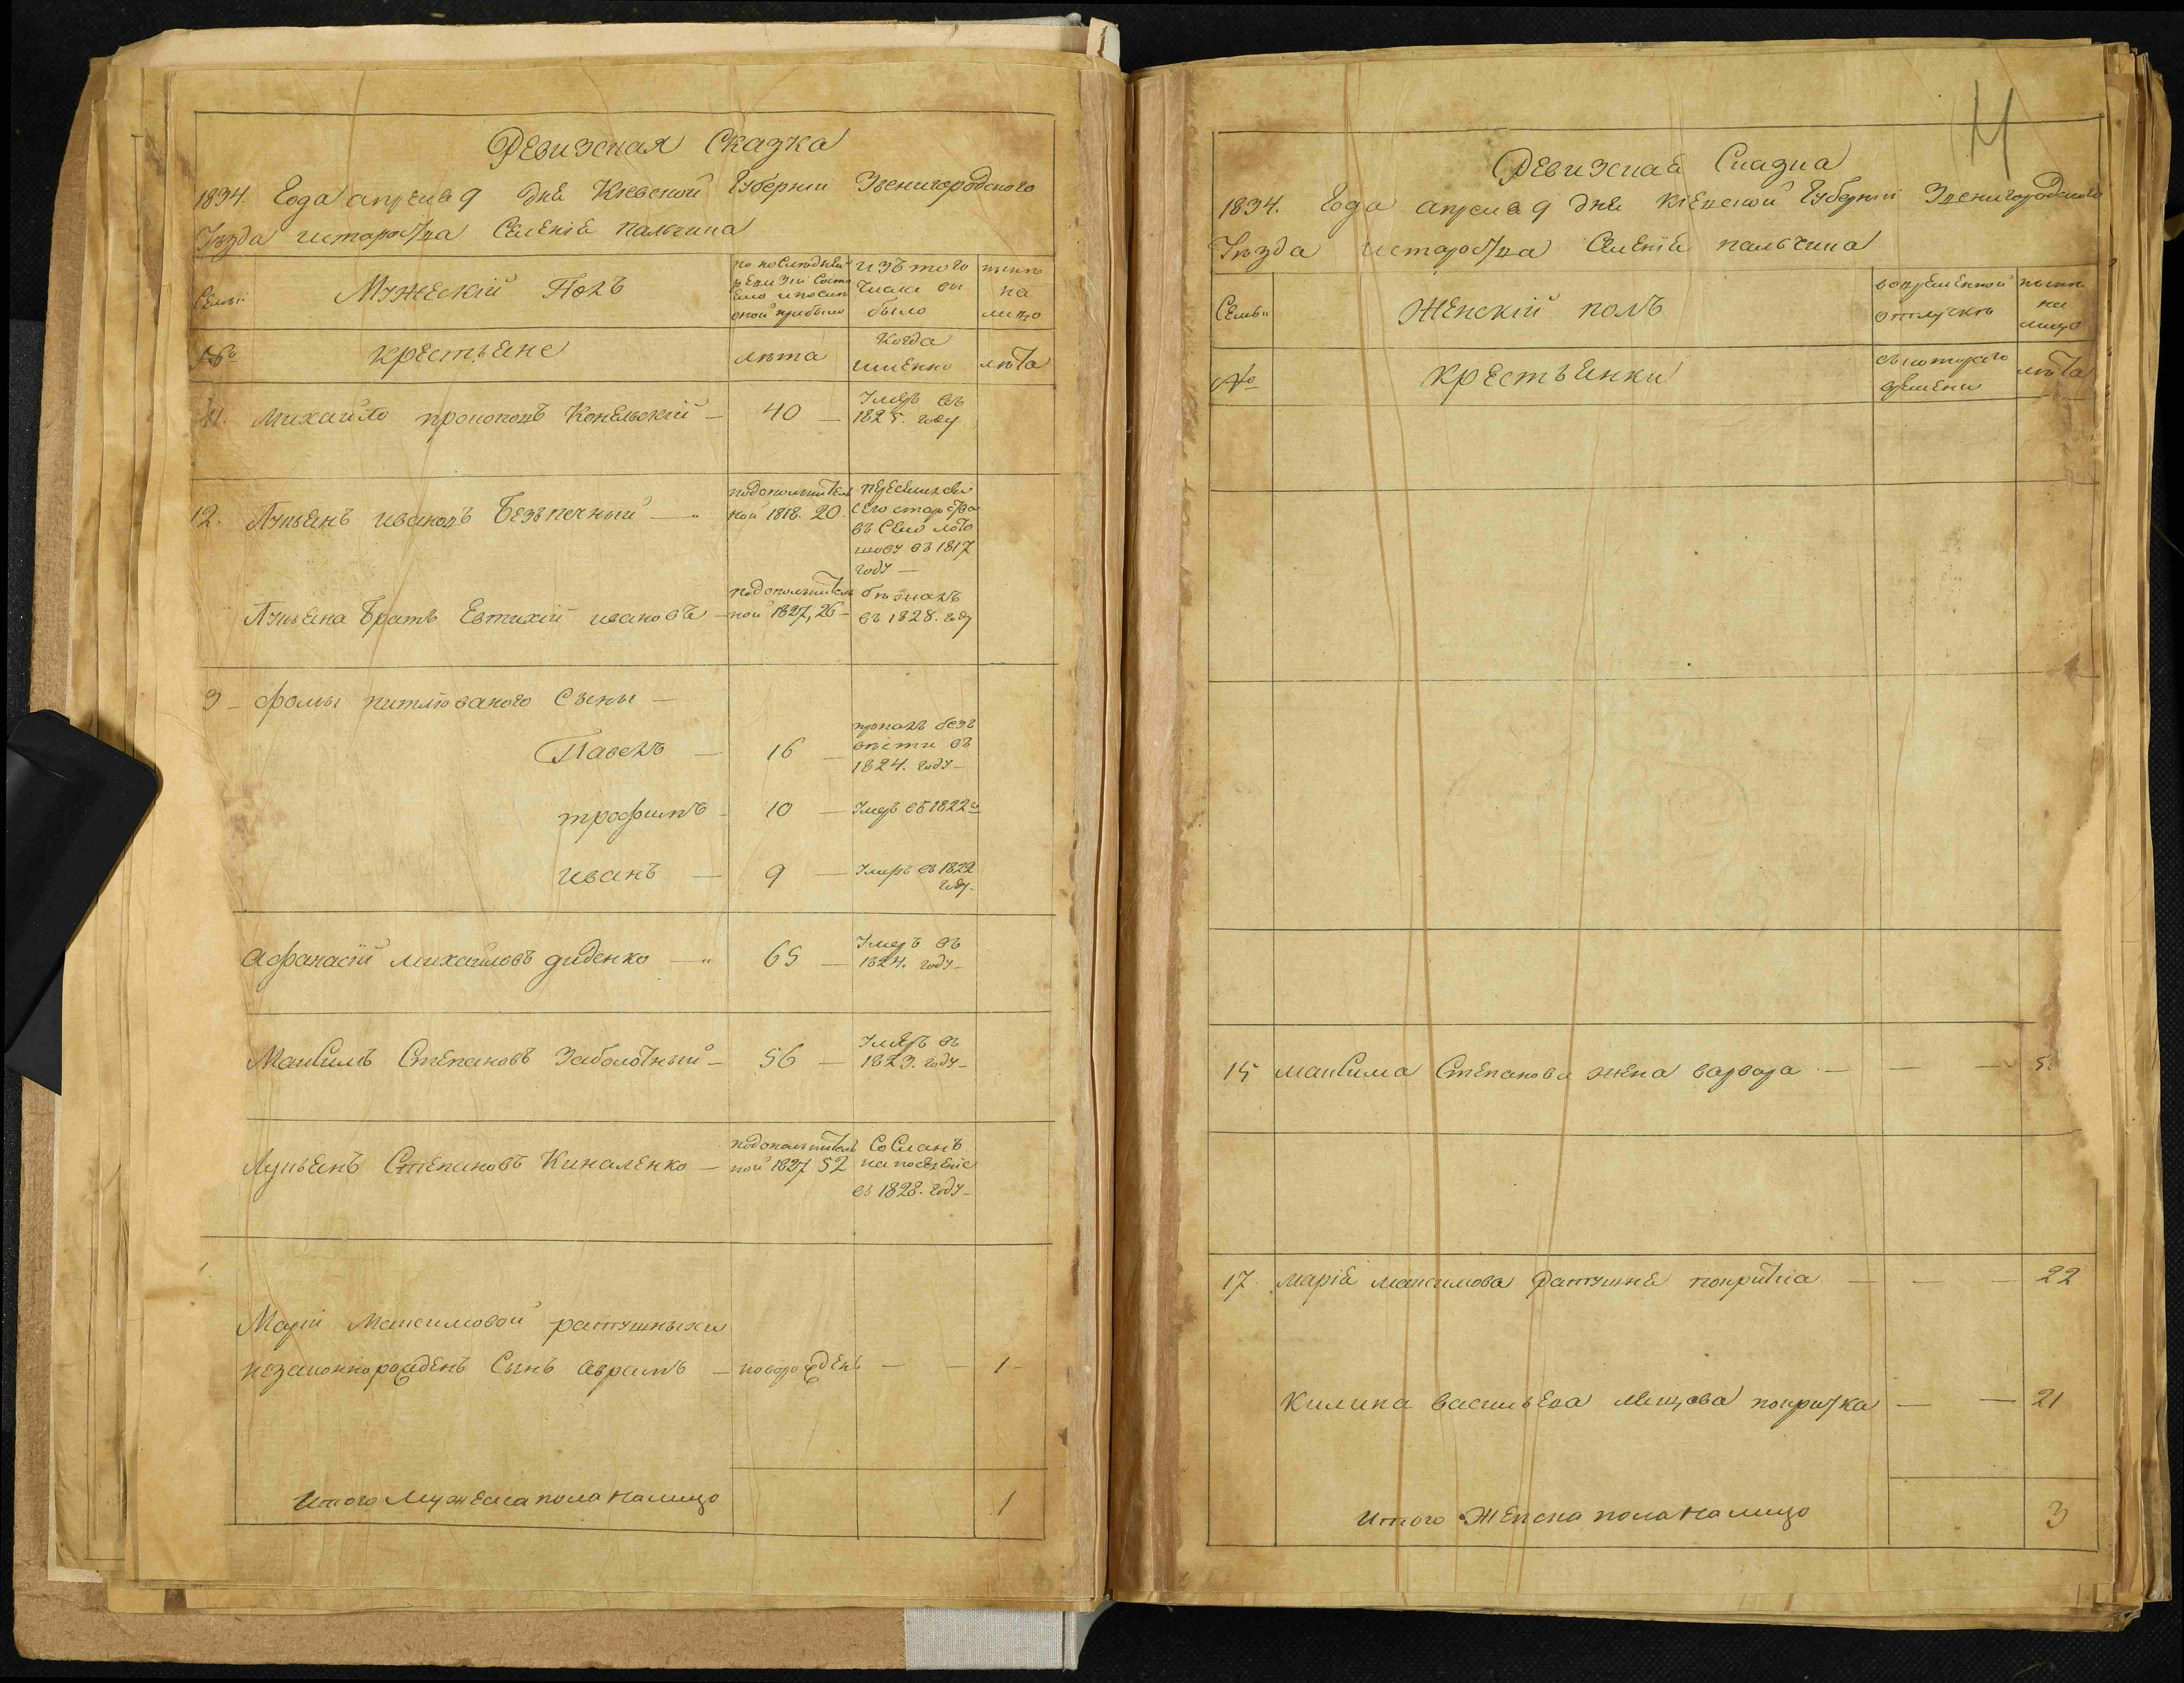 Ревизская Сказка
1834. Года апреля 9 дня Кіевской Губерніи Звенигородского
Уезда истароства Селенія Пальчика
Семьи
Мужескій Полъ
по последней ревизіи состояло и после оной прибыло
изъ того числа выбыло
ныне на лицо
№
крестьяне
лѣта
Когда именно
лѣта
11. Михайло прокоповъ Конельскій — 40 — Умеръ въ 1825. году
12. Лукьянъ ивановъ Безпечный — подополнительной 1818. 20. въ 1817 году —
Лукьяна Братъ Евтихій ивановъ — подополнительной 1827, 26 — бѣжалъ въ 1828. году
3 — Фомы питлёваного Сыны —
Павелъ — 16 — пропалъ безъ вѣсти въ 1824. году —
трофимъ — 10 — Умеръ въ 1822 г
иванъ — 9 — Умеръ въ 1822 году —
Афанасій михайловъ диденко — 65 — Умеръ въ 1824. году —
Максимъ Степановъ Заболотный — 56 — Умеръ въ 1823. году —
Лукьянъ Степановъ Кикаленко — подополнительной 1827 52 Сосланъ на поселеніе въ 1828. году —
Маріи Максимовой ратушныхи
незаконнорожденъ Сынъ аврамъ — новорожденъ — — 1 —
Итого Мужеска пола налицо 1
Ревизская Сказка
1834. Года апреля 9 дня кіевской Губерніи Звенигородского
Уезда истароства Селенія пальчика
Семьи
Женскій полъ
вовременной отлучкѣ
ныне на лицо
№
крестьянки
съ которого времени
лѣта
15 максима Степанова жена варвара — — — 5
17. марія максимова Ратушня покритка — — 22
Килина васильева покритка — — 21
Итого Женска пола налицо 3